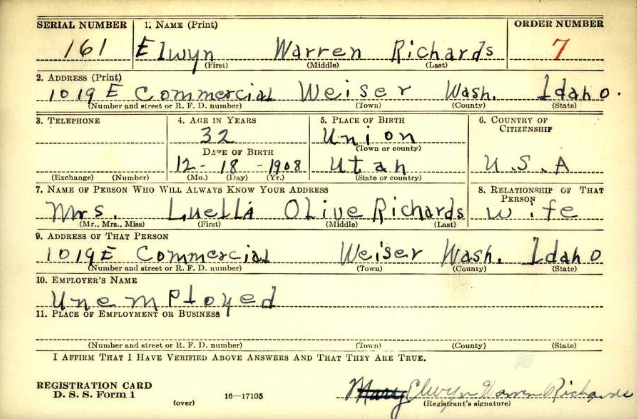 SERIAL NUMBER 1. NAME (Print) ORDER NUMBER
161 Elwyn Warren Richards 7
(First) (Middle) (Last)
2. ADDRESS (Print)
1019 E Commercial Weiser Wash. Idaho.
(Number and street or R. F. D. number) (Town) (County) (State)
3. TELEPHONE 4. AGE IN YEARS 5. PLACE OF BIRTH 6. COUNTRY OF CITIZENSHIP
32 Union
(Town or county)
DATE OF BIRTH
12-18-1908 Utah U.S.A
(Exchange) (Number) (Mo.) (Day) (Yr.) (State or country)
7. NAME OF PERSON WHO WILL ALWAYS KNOW YOUR ADDRESS 8. RELATIONSHIP OF THAT PERSON
Mrs. Luella Olive Richards wife
(Mr., Mrs., Miss) (First) (Middle) (Last)
9. ADDRESS OF THAT PERSON
1019 E Commercial Weiser Wash. Idaho
(Number and street or R. F. D. number) (Town) (County) (State)
10. EMPLOYER'S NAME
Unemployed
11. PLACE OF EMPLOYMENT OR BUSINESS
(Number and street or R. F. D. number) (Town) (County) (State)
I AFFIRM THAT I HAVE VERIFIED ABOVE ANSWERS AND THAT THEY ARE TRUE.
REGISTRATION CARD
D. S. S. Form 1 16—17105 Elwyn Warren Richards
(over) (Registrant's signature)